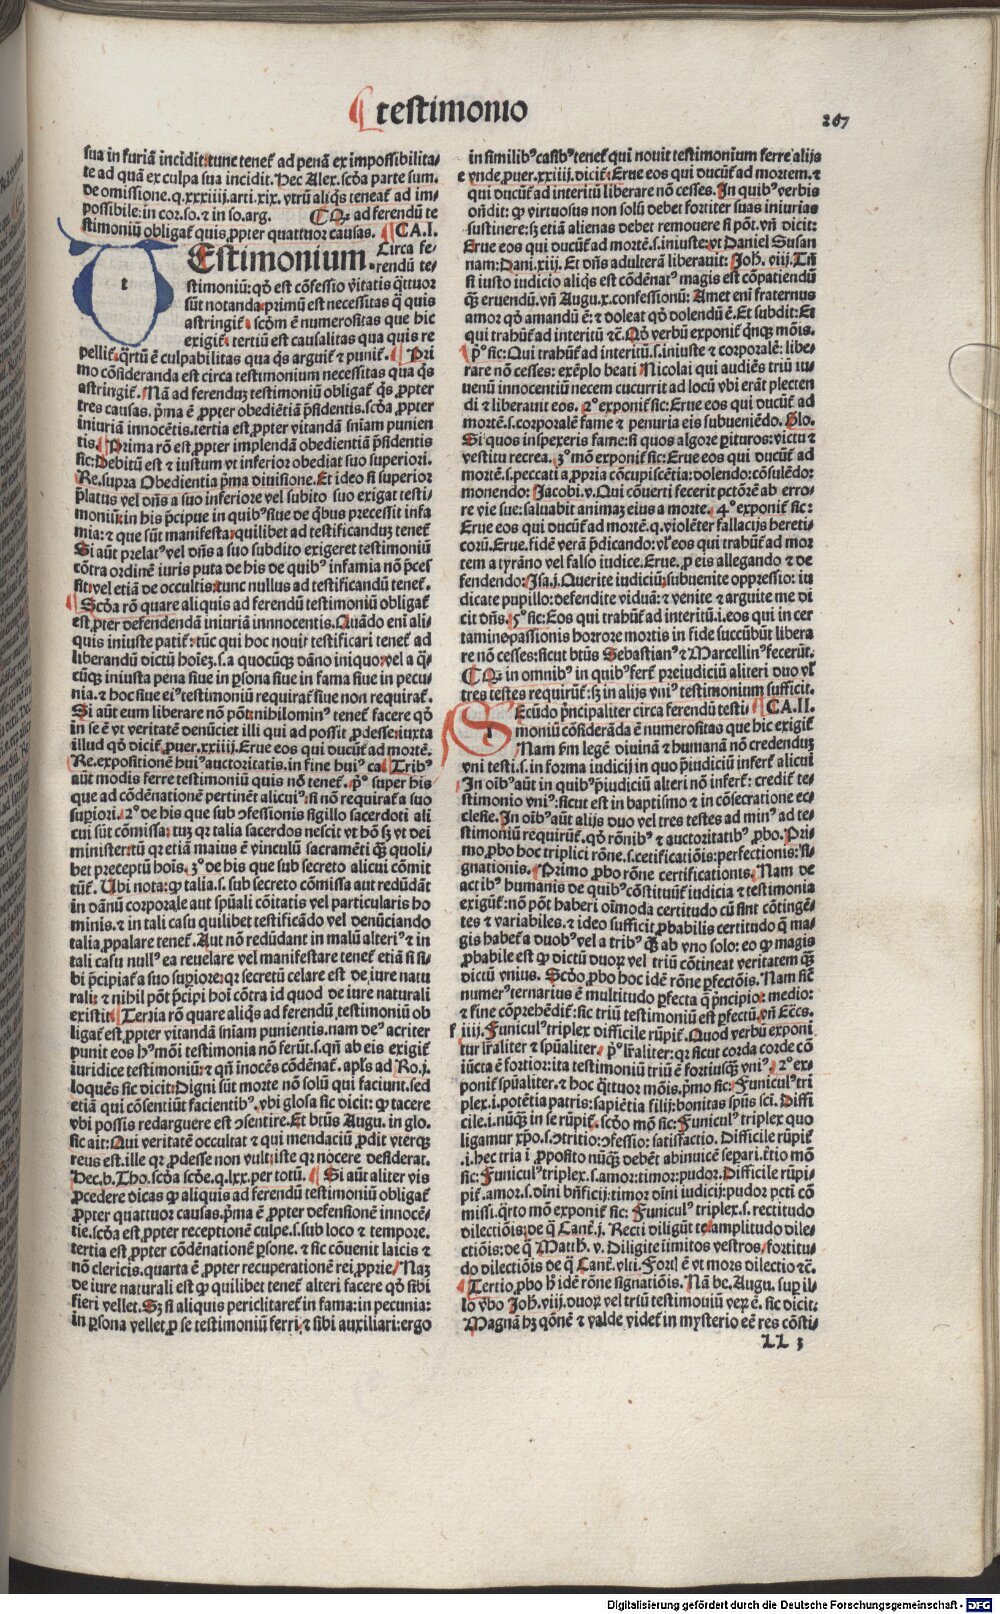 ¶ testimonio
267
sua in furiā incidit: tunc teneť ad penā ex impossibilita/
te ad quā ex culpa sua incidit. Hec Alex. scďa parte sum.
de omissione. q. xxxiiij. arti. xix. vtrū aliq̄s teneat̃ ad im/
possibile: in cor. so. ⁊ in so. arg. ¶ Qꝫ ad ferendū te
stimoniū obligat̃ quis ꝓpter quattuor causas. ¶ CA. I.
TEstimonium. Circa fe/
rendū te/
stimoniū: qď est cōfessio v̄itatis q̄ttuor
sūt notanda. primū est necessitas q̄ quis
astringit̃. scďm ē numerositas que hic
exigit̃. tertiū est causalitas qua quis re
pellit̃. q̄rtū ē culpabilitas qua q̄s arguit̃ ⁊ punit̃. ¶ Pri
mo cōsideranda est circa testimonium necessitas qua q̄s
astringit̃. Nā ad ferenduꝫ testimoniū obligat̃ q̄s ꝓpter
tres causas. p̄ma ē ꝓpter obediētiā p̄sidentis. scďa ꝓpter
iniuriā innocētis. tertia est ꝓpter vitandā sniam punien
tis. ¶ Prima rō est ꝓpter implendā obedientiā p̄sidentis
sic: Debitū est ⁊ iustum vt inferior obediat suo superiori.
Re. supra Obedientia p̄ma diuisione. Et ideo si superior
p̄latus vel dn̄s a suo inferiore vel subito suo exigat testi/
moniū: in his p̄cipue in quibꝰ siue de q̄bus precessit infa
mia: ⁊ que sūt manifesta: quilibet ad testificanduꝫ teneť
Si aūt prelatꝰ vel dn̄s a suo subdito exigeret testimoniū
cōtra ordinē iuris puta de his de quibꝰ infamia nō p̄ces
sit: vel etiā de occultis: tunc nullus ad testificandū teneť.
¶ Scďa rō quare aliquis ad ferendū testimoniū obligat̃
est ꝓpter defendendā iniuriā innnocentis. Quādo eni ali/
quis iniuste patit̃: tūc qui hoc nouit testificari teneť ad
liberandū dictū hoieꝫ. s. a quocūqꝫ dāno iniquo: vel a q̄/
cūqꝫ iniusta pena siue in ꝑsona siue in fama siue in pecu/
nia. ⁊ hoc siue eiꝰ testimoniū requirat̃ siue non requirat̃.
Si aūt eum liberare nō pōt: nihilominꝰ teneť facere qď
in se ē vt veritatē denūciet illi qui ad possit ꝓdesse: iuxta
illud qď dicit̃ ꝓuer. xxiiij. Erue eos qui ducūt̃ ad mortē.
Re. expositionē huiꝰ auctoritatis. in fine huiꝰ ca. Tribꝰ
aūt modis ferre testimoniū quis nō teneť. pº super his
que ad cōdēnationē pertinēt alicuiꝰ: si nō requirat̃ a suo
supiori. 2º de his que sub ↄfessionis sigillo sacerdoti ali
cui sūt cōmissa: tuꝫ qꝛ talia sacerdos nescit vt hō sꝫ vt dei
minister: tū qꝛ etiā maius ē vinculū sacramēti q̄ꝫ quoli/
bet preceptū hois. 3º de his que sub secreto alicui cōmit
tūt̃. Ubi nota: ꝙ talia. s. sub secreto cōmissa aut redūdāt
in dānū corporale aut spūali cōitatis vel particularis ho
minis. ⁊ in tali casu quilibet testificādo vel denūciando
talia ꝓpalare teneť. Aut nō redūdant in malū alteriꝰ ⁊ in
tali casu nullꝰ ea reuelare vel manifestare teneť etiā si si/
bi p̄cipiat̃ a suo supiore: qꝛ secretū celare est de iure natu
rali: ⁊ nihil pōt p̄cipi hoi cōtra id quod de iure naturali
existit. ¶ Tertia rō quare aliq̄s ad ferendū testimoniū ob
ligat̃ est ꝓpter vitandā sniam punientis. nam deꝰ acriter
punit eos hꝰmōi testimonia nō ferūt. s. qn̄ ab eis exigit̃
iuridice testimoniū: ⁊ qn̄ inocēs cōdēnat̃. apl̃s ad Ro. j.
loquēs sic dicit: Digni sūt morte nō solū qui faciunt. sed
etiā qui cōsentiūt facientibꝰ. vbi glosa sic dicit: ꝙ tacere
vbi possis redarguere est ↄsentire. Et btūs Augu. in glo.
sic ait: Qui veritatē occultat ⁊ qui mendaciū ꝓdit vterqꝫ
reus est. ille qꝛ ꝓdesse non vult: iste qꝛ nocere desiderat.
Hec. b. Tho. scďa scďe. q. lxx. per totū. ¶ Si aūt aliter vis
ꝓcedere dicas ꝙ aliquis ad ferendū testimoniū obligat̃
ꝓpter quattuor causas. p̄ma ē ꝓpter defensionē innocē/
tie. scďa est ꝓpter receptionē culpe. s. sub loco ⁊ tempore.
tertia est ꝓpter cōdēnationē ꝑsone. ⁊ sic cōuenit laicis ⁊
nō clericis. quarta ē ꝓpter recuperationē rei ꝓprie. Naꝫ
de iure naturali est ꝙ quilibet teneť alteri facere qď sibi
fieri vellet. Sꝫ si aliquis periclitaret̃ in fama: in pecunia:
in ꝑsona vellet ꝓ se testimoniū ferri: ⁊ sibi auxiliari: ergo
in similibꝰ casibꝰ teneť qui nouit testimonium ferre alijs
e vnde ꝓuer. xxiiij. dicit̃: Erue eos qui ducūt̃ ad mortem. ⁊
qui ducūt̃ ad interitū liberare nō cesses. In quibꝰ verbis
on̄dit̃: ꝙ virtuosus non solū debet fortiter suas iniurias
sustinere: sꝫ etiā alienas debet remouere si pōt. vn̄ dicit:
Erue eos qui ducūt̃ ad mortē. s. iniuste: vt Daniel Susan
nam: Dani. xiij. Et dn̄s adulterā liberauit: Joh. viij. Tn̄
si iusto iudicio aliq̄s est cōdēnatꝰ magis est cōpatiendū
q̄ꝫ eruendū. vn̄ Augu. x. confessionū: Amet eni fraternus
amor qď amandū ē: ⁊ doleat qď dolendū ē. Et subdit: Et
qui trahūt̃ ad interitū ⁊c̄. Qď verbū exponit̃ q̄nqꝫ mōis.
¶ pº sic: Qui trahūt̃ ad interitū. s. iniuste ⁊ corporalē: libe/
rare nō cesses: exēplo beati Nicolai qui audiēs triū iu/
uenū innocentiū necem cucurrit ad locū vbi erāt plecten
di ⁊ liberauit eos. 2º exponit̃ sic: Erue eos qui ducūt̃ ad
mortē. s. corporalē fame ⁊ penuria eis subueniēdo. Glo.
Si quos inspexeris fame: si quos algore ꝑituros: victu ⁊
vestitu recrea. 3º mō exponit̃ sic: Erue eos qui ducūt̃ ad
mortē. s. peccati a ꝓpria cōcupiscētia: dolendo: cōsulēdo:
monendo: Jacobi. v. Qui cōuerti fecerit pctōrē ab erro/
re vie sue: saluabit animaꝫ eius a morte. 4º exponit̃ sic:
Erue eos qui ducūt̃ ad mortē. q. violēter fallacijs hereti/
corū. Erue. fidē verā p̄dicando: vl̃ eos qui trahūt̃ ad mor
tem a tyrāno vel falso iudice. Erue. ꝓ eis allegando ⁊ de
fendendo: Isa. j. Querite iudiciū: subuenite oppresso: iu
dicate pupillo: defendite viduā: ⁊ venite ⁊ arguite me di
cit dn̄s. 5º sic: Eos qui trahūt̃ ad interitū. i. eos qui in cer
tamine passionis horrore mortis in fide succūbūt libera
re nō cesses: sicut btūs Sebastianꝰ ⁊ Marcellinꝰ fecerūt.
¶ Qꝫ in omnibꝰ in quibꝰ fert̃ preiudiciū aliteri duo vl̃
tres testes requirūt̃: sꝫ in alijs vniꝰ testimonium sufficit.
SEcūdo p̄ncipaliter circa ferendū testi/ ¶ CA. II.
moniū cōsiderāda ē numerositas que hic exigit̃
Nam scďm legē diuinā ⁊ humanā nō credenduꝫ
vni testi. s. in forma iudicij in quo p̄iudiciū infert̃ alicui
In oibꝰ aūt in quibꝰ p̄iudiciū alteri nō infert̃: credit̃ te/
stimonio vniꝰ: sicut est in baptismo ⁊ in cōsecratione ec/
clesie. In oibꝰ aūt alijs duo vel tres testes ad minꝰ ad te/
stimoniū requirūt̃. qď rōnibꝰ ⁊ auctoritatibꝰ ꝓbo. Pri/
mo ꝓbo hoc triplici rōne. s. cetificatiōis: perfectionis: si/
gnationis. ¶ Primo ꝓbo rōne certificationis. Nam de
actibꝰ humanis de quibꝰ cōstituūt̃ iudicia ⁊ testimonia
exigūt̃: nō pōt haberi oimoda certitudo cū sint cōtingē/
tes ⁊ variabiles. ⁊ ideo sufficit ꝓbabilis certitudo q̄ ma/
gis habet̃ a duobꝰ vel a tribꝰ q̄ꝫ ab vno solo: eo ꝙ magis
ꝓbabile est ꝙ dictū duoꝝ vel triū cōtineat veritatem q̄ꝫ
dictū vnius. Scďo ꝓbo hoc idē rōne ꝑfectiōis. Nam sic̃
numerꝰ ternarius ē multitudo ꝑfecta q̄ p̄ncipio: medio:
⁊ fine cōprehēdit̃: sic triū testimoniū est ꝑfectū. vn̄ Eccs.
f iiij. Funiculꝰ triplex difficile rūpit̃. Quod verbū exponi
tur lr̄aliter ⁊ spūaliter. pº lr̄aliter: qꝛ sicut corda corde cō
iūcta ē fortior: ita testimoniū triū ē fortiusq̄ꝫ vniꝰ. 2º ex/
ponit̃ spūaliter. ⁊ hoc q̄ttuor mōis. p̄mo sic: Funiculꝰ tri
plex. i. potētia patris: sapiētia filij: bonitas spūs sci. Diffi
cile. i. nūqꝫ in se rūpit̃. scďo mō sic: Funiculꝰ triplex quo
ligamur xp̄o. s. ↄtritio: ↄfessio: satisfactio. Difficile rūpit̃
. i. hec tria i ꝓposito nūqꝫ debēt abinuicē separi. t̄tio mō
sic: Funiculꝰ triplex. s. amor: timor: pudor. Difficile rūpi/
pit̃. amor. s. dīni bn̄ficij: timor dīni iudicij: pudor pcti cō
missi. q̄rto mō exponit̃ sic: Funiculꝰ triplex. s. rectitudo
dilectiōis: de q̄ Cant̃. j. Recti diligūt te. amplitudo dile/
ctiōis: de q̄ Matth. v. Diligite inimicos vestros. fortitu/
do dilectiōis de q̄ Cant̃. vlti. Fortꝭ ē vt mors dilectio ⁊c̄.
¶ Tertio ꝓbo h̄ idē rōne signatiōis. Nā be. Augu. suꝑ il/
lo v̄bo Joh. viij. duoꝝ vel triū testimoniū veꝝ ē. sic dicit:
Magnā hꝫ qōnē ⁊ valde videt̃ in mysterio eē res cōsti/
LL 3
Digitalisierung gefördert durch die Deutsche Forschungsgemeinschaft - DFG